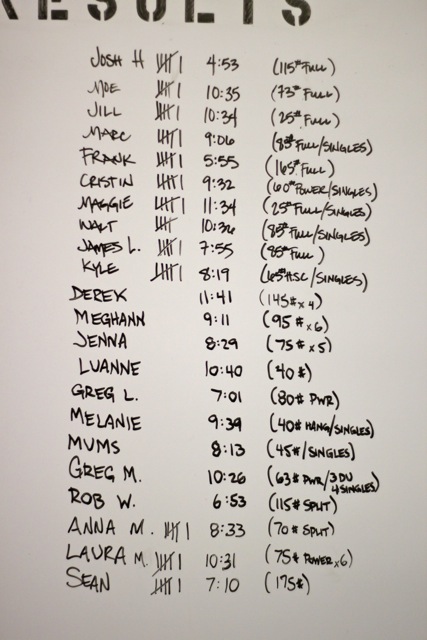 RESULTS
JOSH H 𝍸 I 4:53 (115# FULL)
MOE 𝍸 I 10:35 (73# FULL)
JILL 𝍸 I 10:34 (25# FULL)
MARC 𝍸 I 9:06 (85# FULL/SINGLES)
FRANK 𝍸 I 5:55 (165# FULL)
CRISTIN 𝍸 I 9:32 (60# POWER/SINGLES)
MAGGIE 𝍸 I 11:34 (25# FULL/SINGLES)
WALT 𝍸 10:36 (85# FULL/SINGLES)
JAMES L. 𝍸 I 7:55 (85# FULL)
KYLE 𝍸 I 8:19 (65# HSC/SINGLES)
DEREK 11:41 (145# x 4)
MEGHANN 9:11 (95# x 6)
JENNA 8:29 (75# x 5)
LUANNE 10:40 (40#)
GREG L. 7:01 (80# PWR)
MELANIE 9:39 (40# HANG/SINGLES)
MUMS 8:13 (45#/SINGLES)
GREG M. 10:26 (63# PWR/3DU 4SINGLES)
ROB W. 6:53 (115# SPLIT)
ANNA M. 𝍸 I 8:33 (70# SPLIT)
LAURA M. 𝍸 I 10:31 (75# POWER x 6)
SEAN 𝍸 I 7:10 (175#)